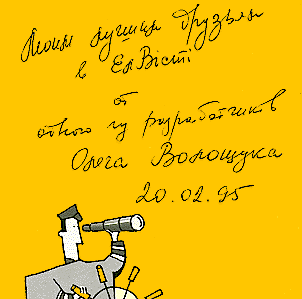 Моим лучшим друзьям
в ЕлВісті
от
одного из разработчиков
Олега Волощука
20.02.95